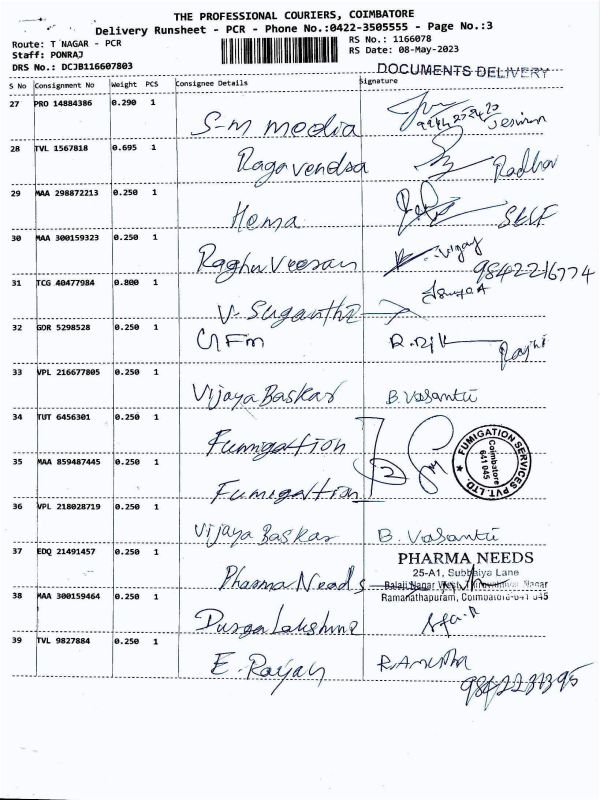 THE PROFESSIONAL COURIERS, COIMBATORE
Delivery Runsheet - PCR - Phone No.:0422-3505555 - Page No.:3
Route: T NAGAR - PCR RS No.: 1166078
Staff: PONRAJ RS Date: 08-May-2023
DRS No.: DCJB116607803 DOCUMENTS DELIVERY
S No Consignment No Weight PCS Consignee Details Signature
27 PRO 14884386 0.290 1
S-M media
28 TVL 1567818 0.695 1
Ragavendra
29 MAA 298872213 0.250 1
Hema SELF
30 MAA 300159323 0.250 1
Vijay
9842216774
31 TCG 40477984 0.800 1
V. Sugantha
32 GOR 5298528 0.250 1
33 VPL 216677805 0.250 1
Vijaya Baskar B. Vasantu
34 TUT 6456301 0.250 1
Fumigation
FUMIGATION SERVICES PVT. LTD.
Coimbatore
641 045
35 MAA 859487445 0.250 1
Fumigation
36 VPL 218028719 0.250 1
Vijaya Baskar B. Vasantu
37 EDQ 21491457 0.250 1
PHARMA NEEDS
25-A1, Subbaiya Lane
Pharma Needs Balaji Nagar Nagar
38 MAA 300159464 0.250 1 Ramanathapuram, Coimbatore-641 045
Durga Lakshmi
39 TVL 9827884 0.250 1
E. Rajan